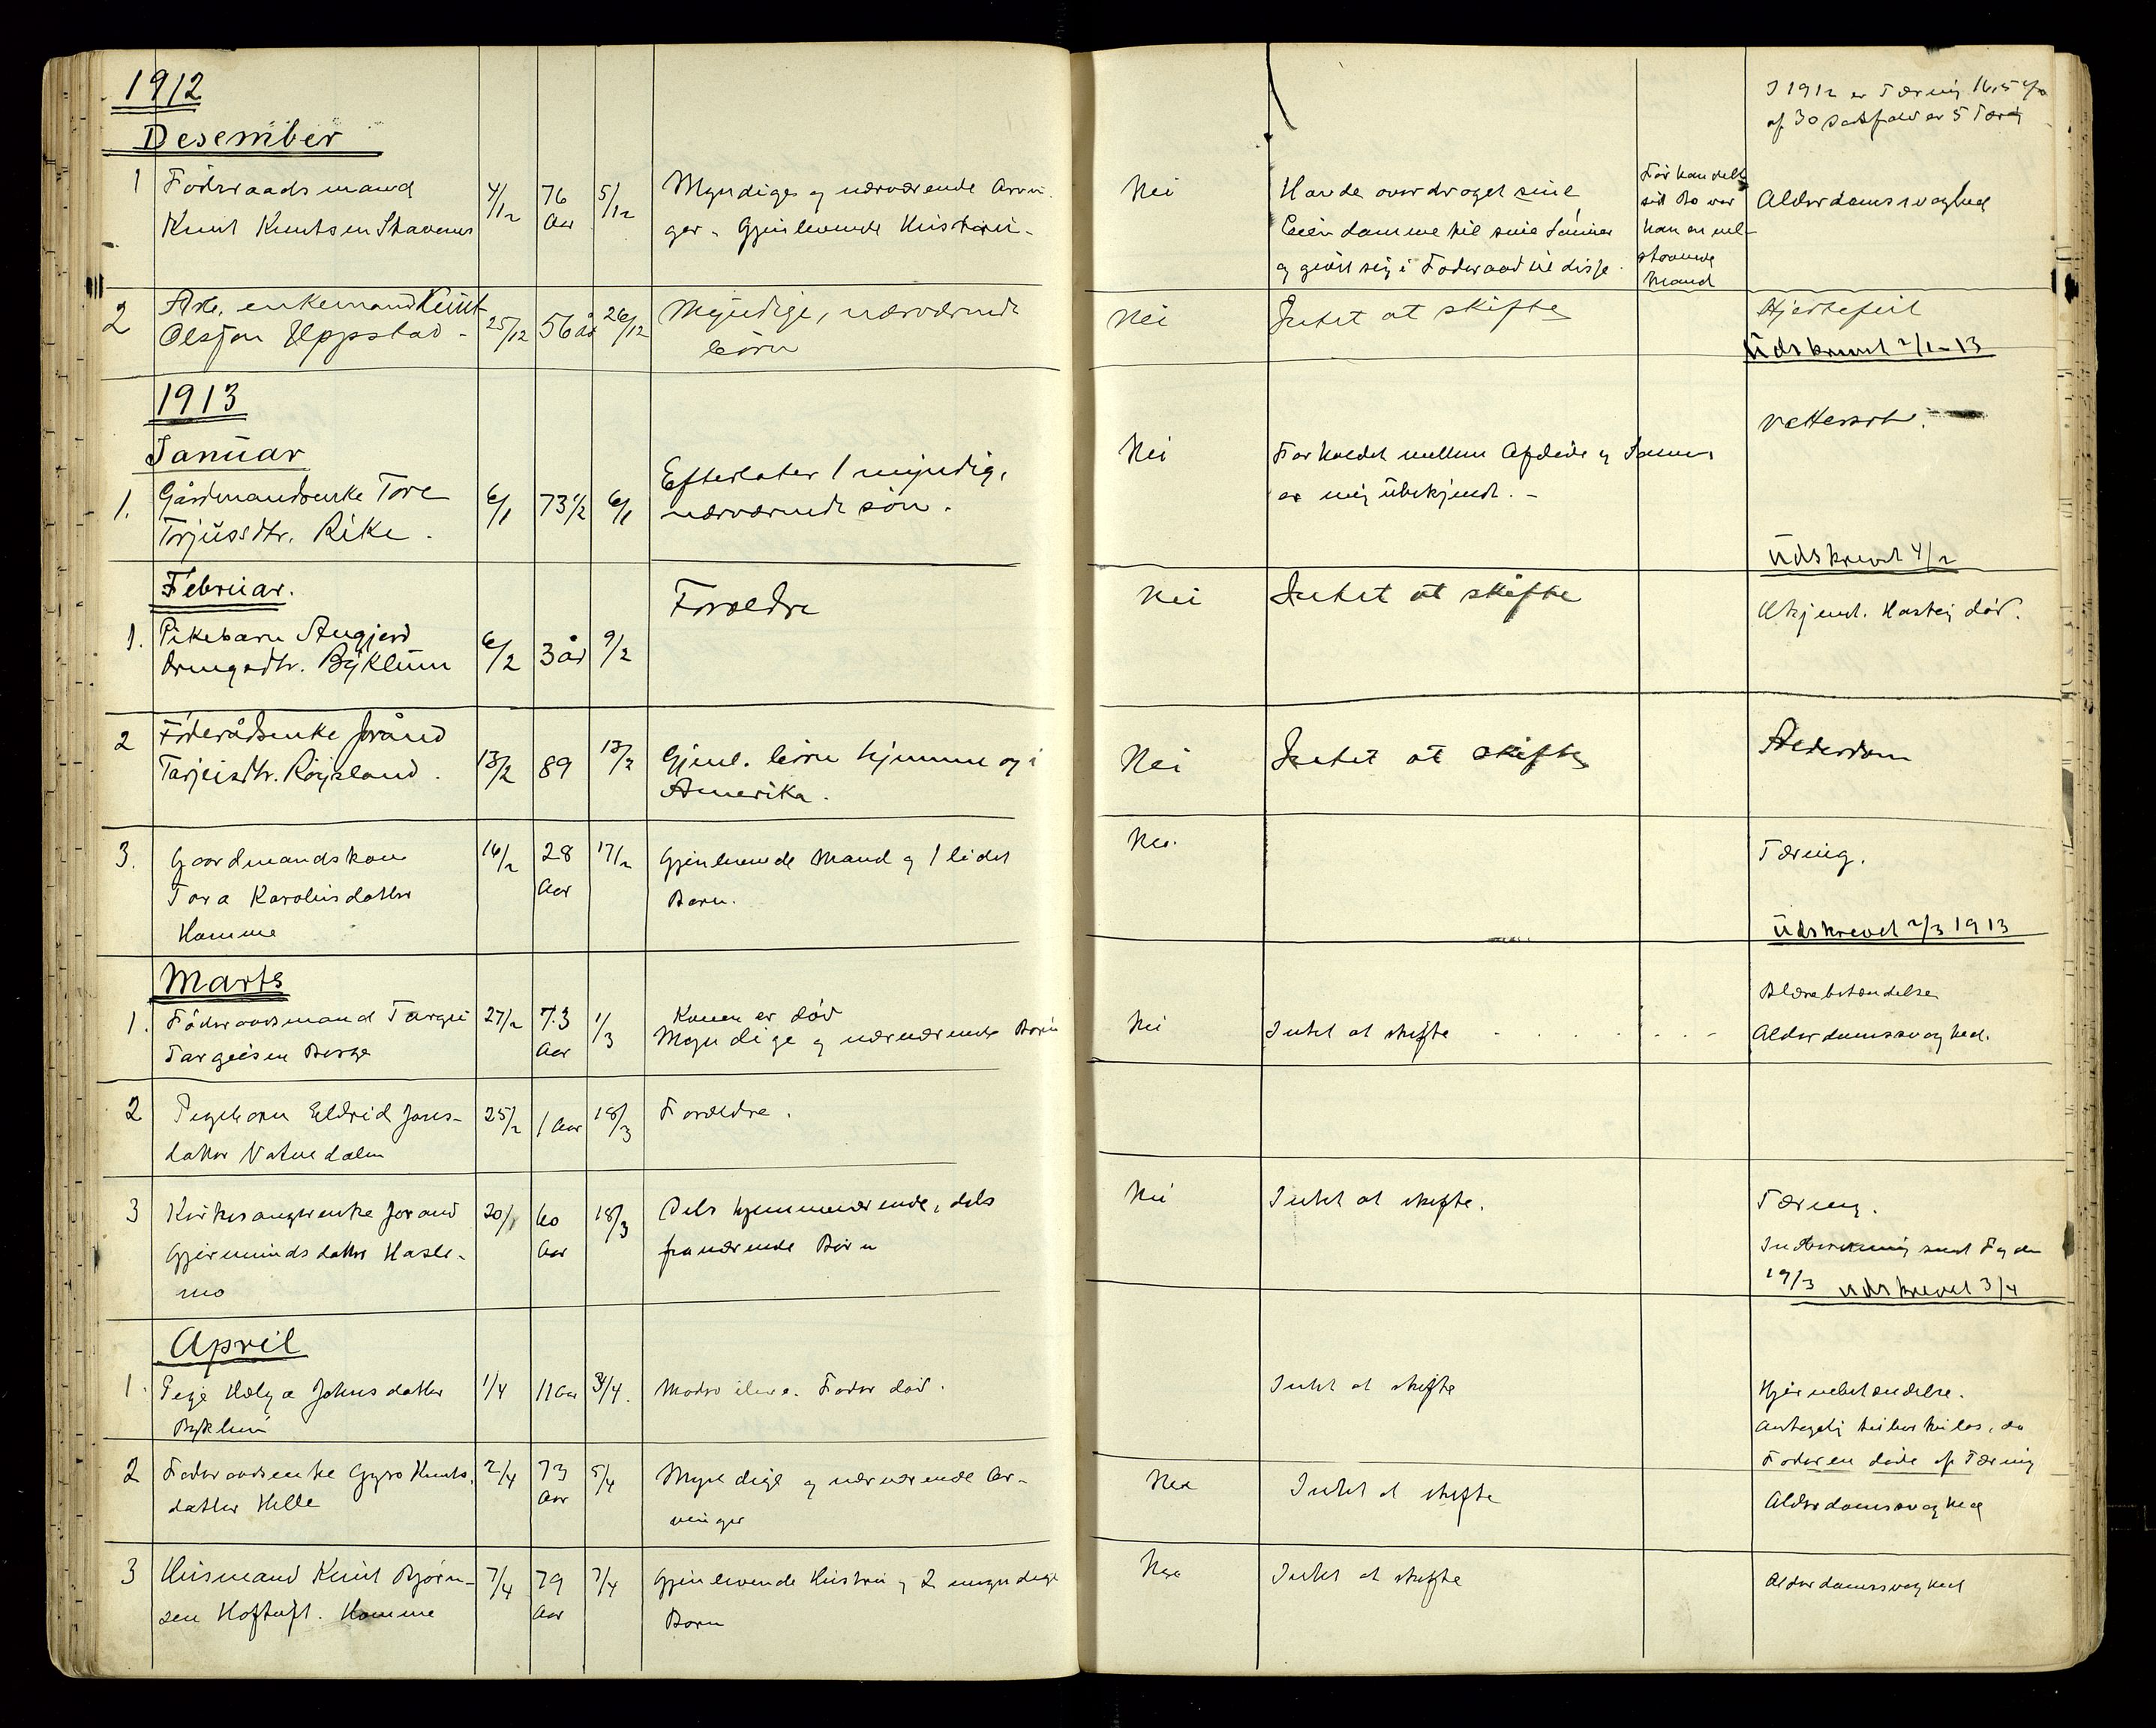 1912
Desember
1 Föderaadsmand
Knut Kuntsen Stavenes
4/12
76
Aar
5/12
Myndige og nærværende Arvin-
ger. Gjenlevende Hustru.
2 Arb. enkemand Knut
Olsson Uppstad -
25/12
56 år
26/12
Myndige, nærværende
børn
1913
Januar
1. Gårdmandsenke Tore
Torjussdtr. Rike.
6/1
73 1/2
6/1
Efterlater 1 myndig,
nærværende søn.
Februar.
1. Pikebarn Angjerd
Dreugsdtr. Byklum
6/2
3 år
9/2
Forældre
2 Föderådsenke Jorånd
Tarjeisdtr. Röysland.
13/2
89
13/2
Gjenl. börn hjemme og i
Amerika.
3. Gaardmandskone
Tora Karolusdatter
Homme
16/2
28
Aar
17/2
Gjenlevende Mand og 1 lidet
Barn.
Marts
1. Föderaadsmand Targei
Targeisen Berge
27/2
73
Aar
1/3
Konen er død
Myndige og nærværende Børn
2 Pigebarn Eldrid Jons-
datter Vatnedalen
25/2
1 Aar
18/3
Forældre.
3 Kirkesangerenke Jorand
Gjermundsdatter Hasle-
mo
20/1
60
Aar
18/3
Dels hjemmeværende, dels
fraværende Børn
April
1. Pige Helga Johnsdatter
Byklum
1/4
11 Aar
3/4.
Moder ilive. Fader død.
2 Föderaadsenke Gyro Knuts-
datter Helle
2/4
73
Aar
5/4
Myndige og nærværende Ar-
vinger
3 Husmand Knut Bjørn-
sen Hoftuft. Homme
7/4
79
Aar
7/4
Gjenlevende Hustru og 2 myndige
Børn
I 1912 er Tæring 16,5 %
af 30 Dødsfald er 5 Tæring
Nei
Havde overdraget sine
Eiendomme til sine Sønner
og givet sig i Foderaad til disse.
Før han delte
sit Bo var
han en vel-
staaende
Mand
Alderdomssvaghed
Nei
Intet at skifte
Hjertefeil
Udskrevet 2/1-13
Nei
Forholdet mellem Afdøde og Sønnen
er mig ubekjendt. -
Vattersot.
Udskrevet 4/2
Nei
Intet at skifte
Ukjendt. Hastig død.
Nei
Intet at skifte
Alderdom
Nei.
Tæring.
Udskrevet 2/3 1913
Nei
Intet at skifte - . . . . . -
Blærebetændelse
Alderdomssvaghed.
Nei
Intet at skifte.
Tæring.
Indberetning sendt Fogden
19/3 Udskrevet 3/4
Intet at skifte
Hjernebetændelse.
Antagelig tuberkuløs, da
Faderen døde af Tæring
Nei
Intet at skifte
Alderdomssvaghed
Nei
Intet at skifte
Alderdomssvaghed